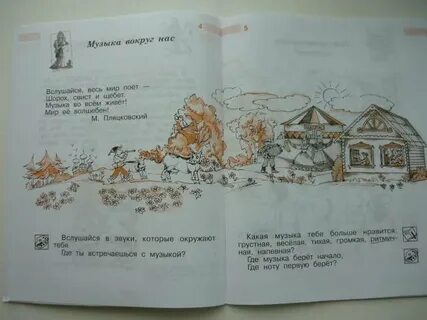 Музыка вокруг нас
Вслушайся, весь мир поёт —
Шорох, свист и щебет.
Музыка во всём живёт!
Мир её волшебен!
М. Пляцковский
Вслушайся в звуки, которые окружают
тебя
Где ты встречаешься с музыкой?
5
Какая музыка тебе больше нравится:
грустная, весёлая, тихая, громкая, ритмич-
ная, напевная?
Где музыка берёт начало,
Где ноту первую берёт?